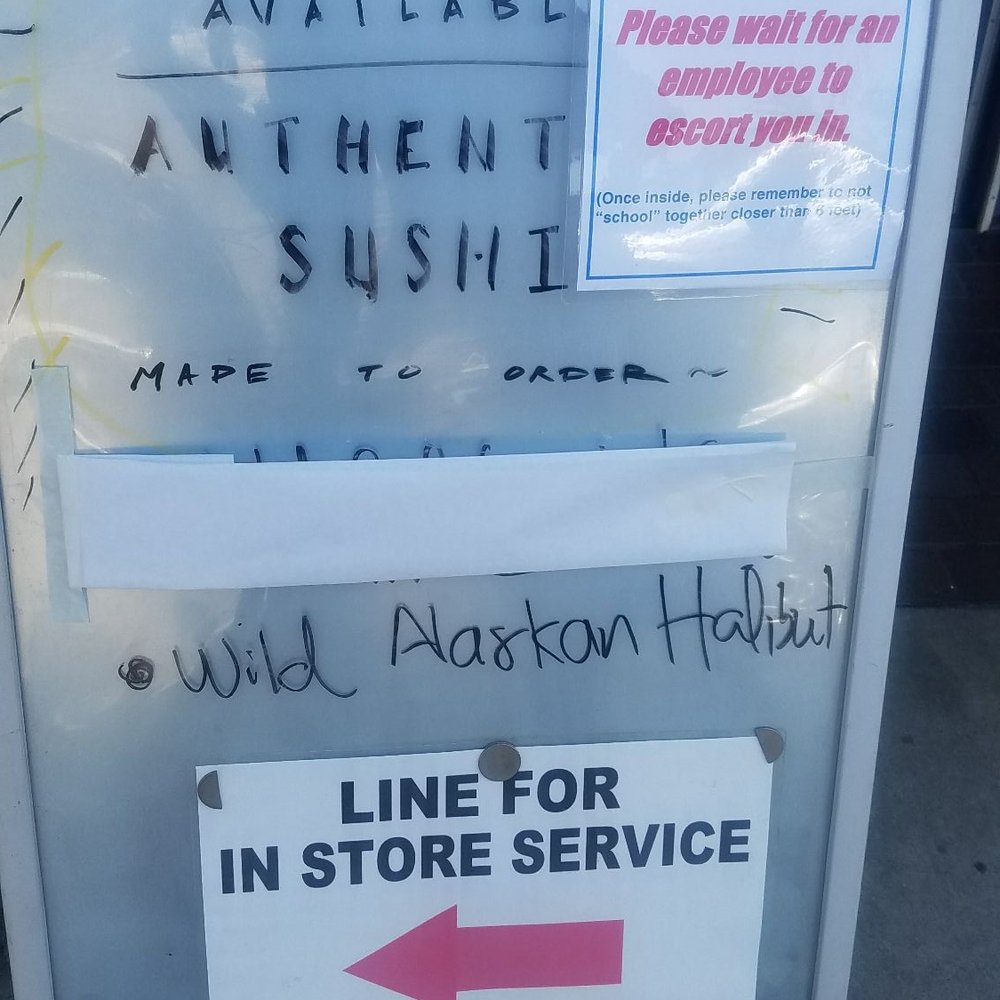 AVAILABL
AUTHENT
SUSHI
MADE TO ORDER ~
• Wild Alaskan Halibut
Please wait for an
employee to
escort you in.
(Once inside, please remember to not
“school” together closer than 6 feet)
LINE FOR
IN STORE SERVICE